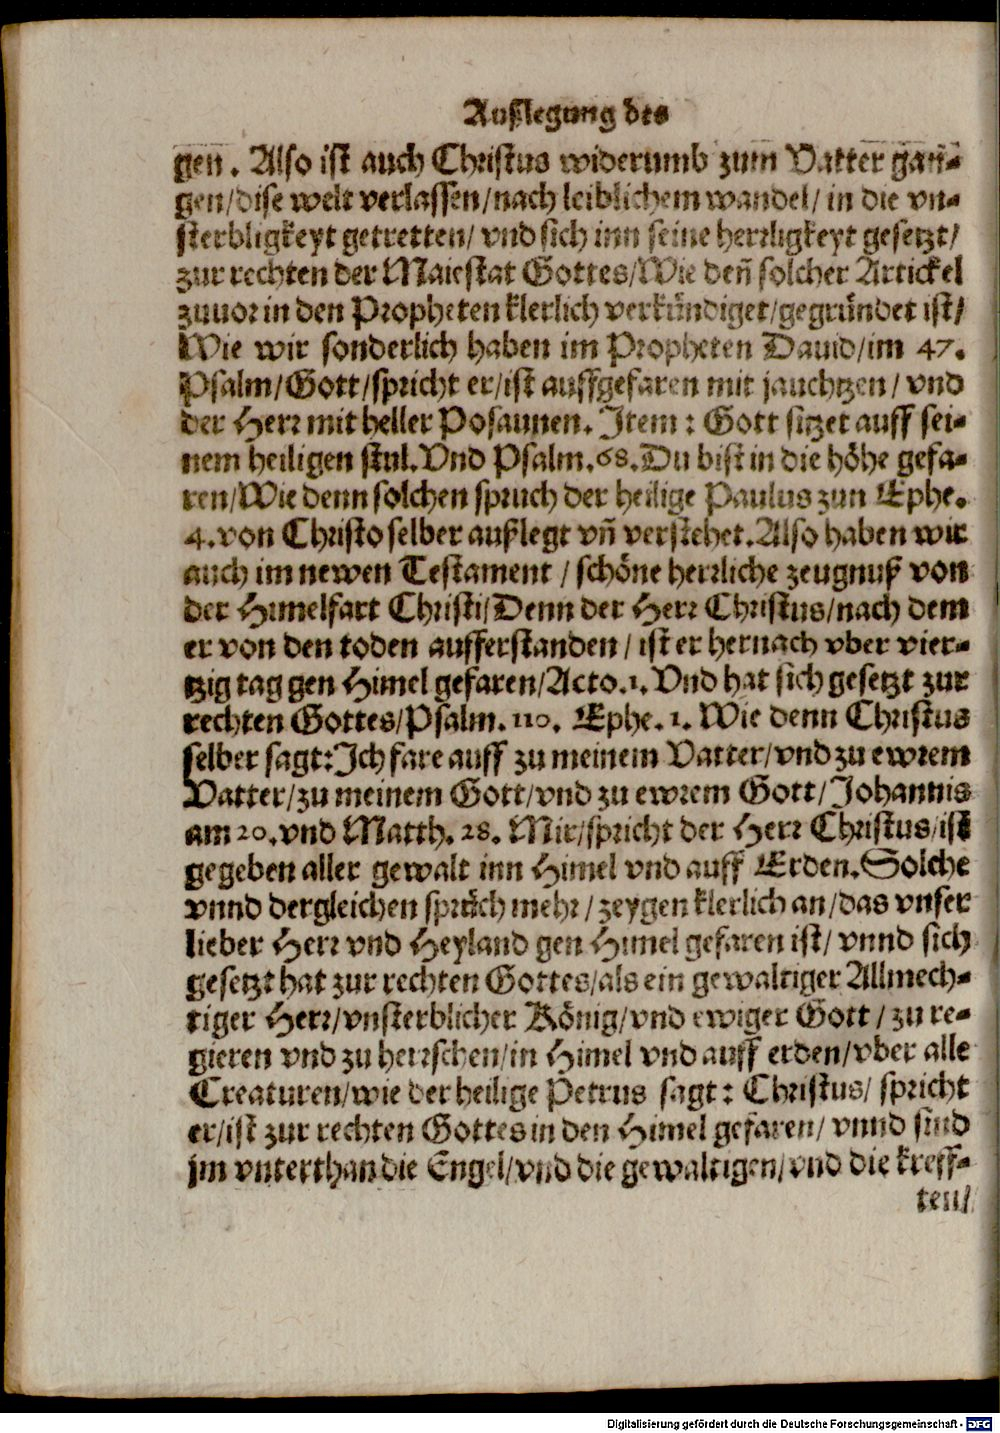 Außlegung des
gen. Also ist auch Christus widerumb zum Vatter gan-
gen/dise welt verlassen/nach leiblichem wandel/ in die vn-
sterbligkeyt getretten/ vnd sich inn seine herrligkeyt gesetzt/
zur rechten der Maiestat Gottes/Wie deñ solcher Artickel
zuuor in den Propheten klerlich verkündiget/gegründet ist/
Wie wir sonderlich haben im Propheten Dauid/im 47.
Psalm/Gott/spricht er/ist auffgefaren mit jauchtzen/ vnd
der Herr mit heller Posaunen. Item: Gott sitzet auff sei-
nem heiligen stul. Vnd Psalm. 68. Du bist in die höhe gefa-
ren/Wie denn solchen spruch der heilige Paulus zun Ephe.
4. von Christo selber außlegt vñ verstehet. Also haben wir
auch im newen Testament / schöne herrliche zeugnuß von
der Himelfart Christi/Denn der Herr Christus/nach dem
er von den toden aufferstanden / ist er hernach vber vier-
tzig tag gen Himel gefaren/Acto. 1. Vnd hat sich gesetzt zur
rechten Gottes/Psalm. 110. Ephe. 1. Wie denn Christus
selber sagt: Ich fare auff zu meinem Vatter/vnd zu ewrem
Vatter/zu meinem Gott/vnd zu ewrem Gott/Johannis
am 20. vnd Matth. 28. Mir/spricht der Herr Christus/ist
gegeben aller gewalt inn Himel vnd auff Erden. Solche
vnnd dergleichen sprüch mehr / zeygen klerlich an/das vnser
lieber Herr vnd Heyland gen Himel gefaren ist/ vnnd sich
gesetzt hat zur rechten Gottes/als ein gewaltiger Allmech-
tiger Herr/vnsterblicher König/vnd ewiger Gott / zu re-
gieren vnd zu herrschen/in Himel vnd auff erden/vber alle
Creaturen/wie der heilige Petrus sagt: Christus/ spricht
er/ist zur rechten Gottes in den Himel gefaren/ vnnd sind
jm vnterthan die Engel/vnd die gewaltigen/vnd die kreff-
ten/
Digitalisierung gefördert durch die Deutsche Forschungsgemeinschaft - DFG